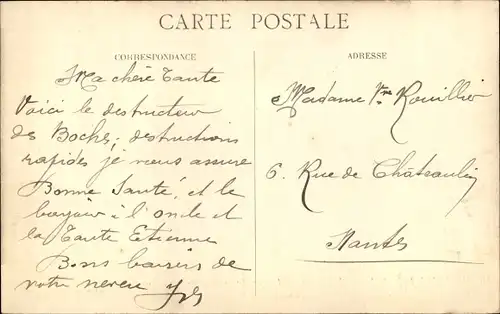 CARTE POSTALE
CORRESPONDANCE
Ma chère Tante
Voici le destructeur
des Boches; destructions
rapides je vous assure
Bonne Santé, et le
bonjour à l'oncle et
la Tante Etienne
Bons baisers de
votre neveu Yves
ADRESSE
Madame Vve Rouillier
6. Rue de Châteaulin
Nantes